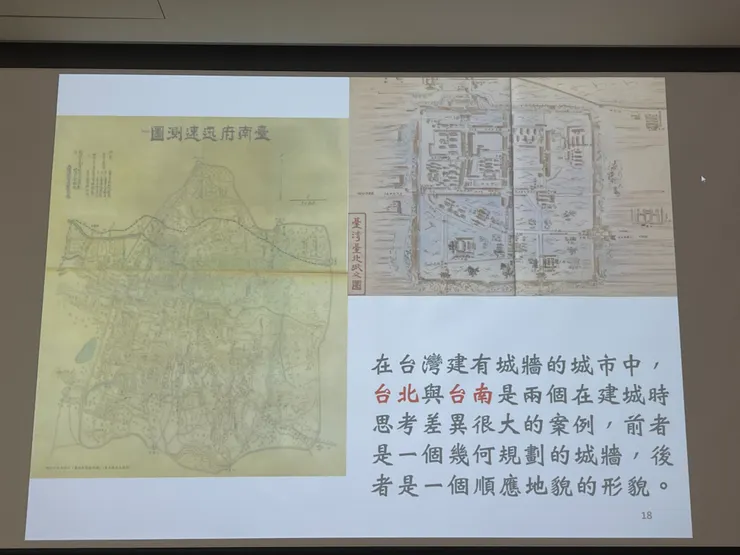 臺南府迅速測圖
臺灣臺北城之圖
在台灣建有城牆的城市中，
台北與台南是兩個在建城時
思考差異很大的案例，前者
是一個幾何規劃的城牆，後
者是一個順應地貌的形貌。
18